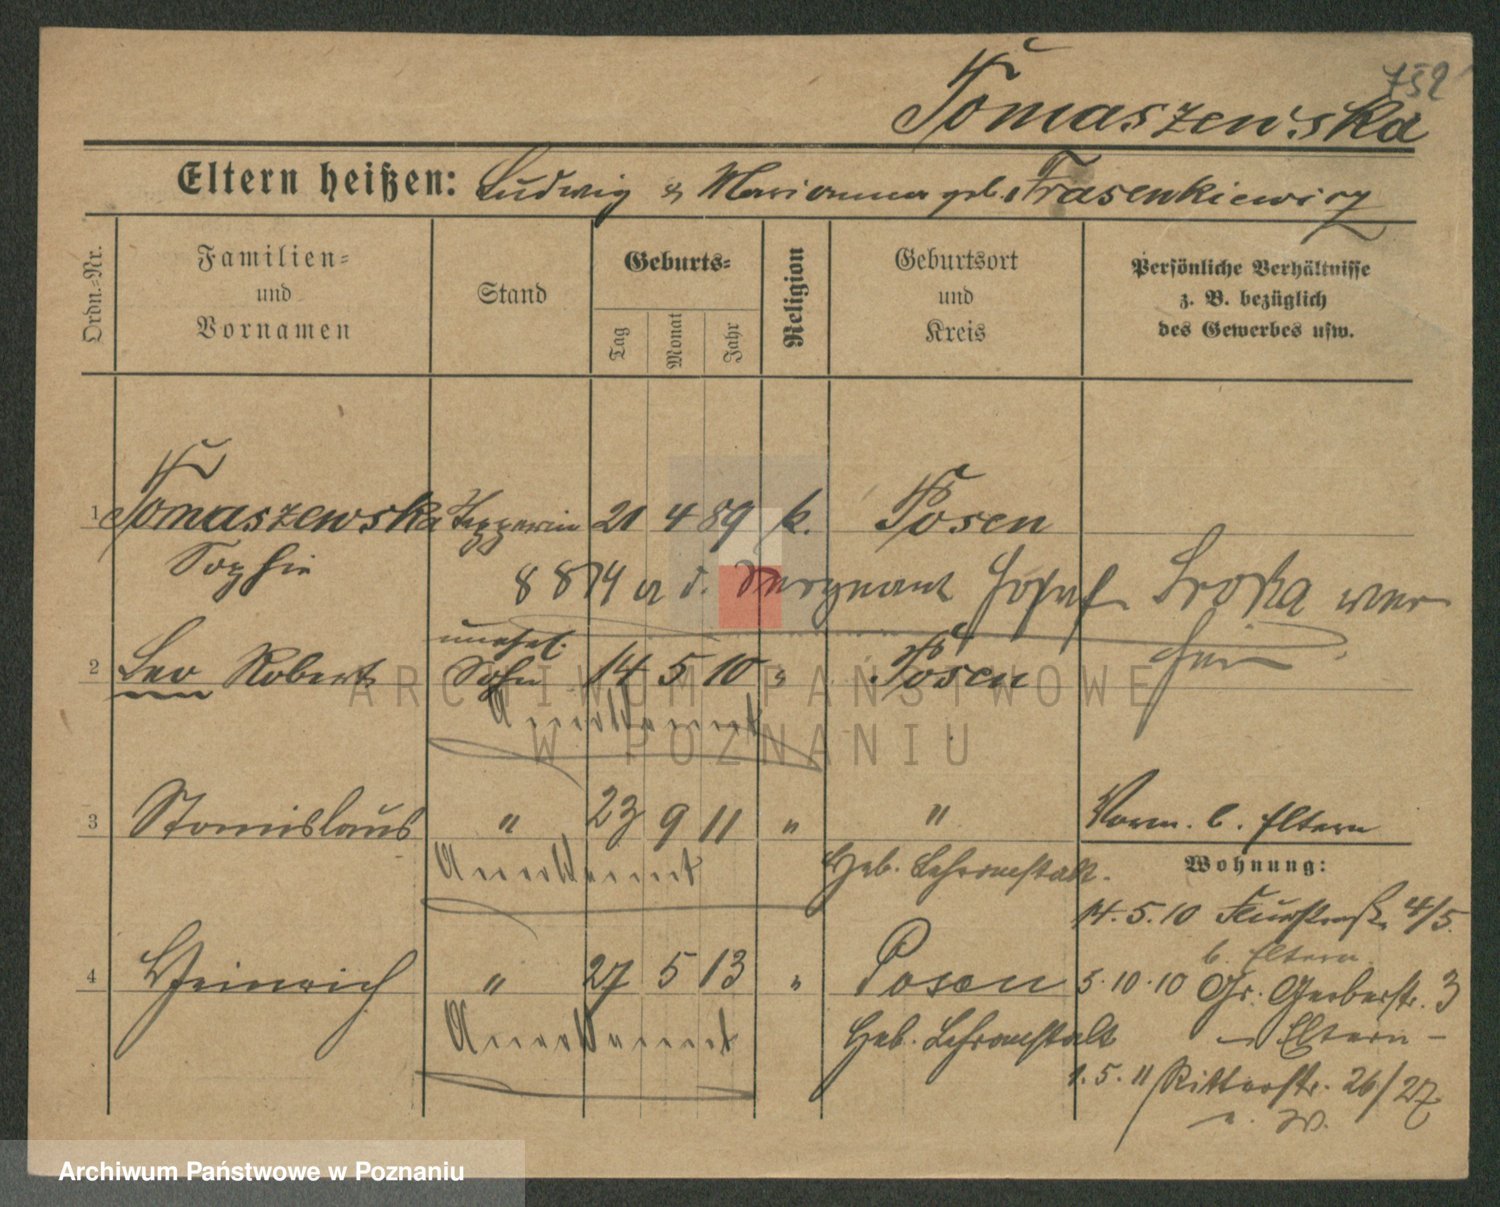 752
Tomaszewska
Eltern heißen: Ludwig & Marianna geb. Frasenkiewicz
Ordn.-Nr.
Familien-
und
Vornamen
Stand
Geburts-
Tag
Monat
Jahr
Religion
Geburtsort
und
Kreis
Persönliche Verhältnisse
z. B. bezüglich
des Gewerbes usw.
1 Tomaszewska 21 4 89 k. Posen
Sophie
8874 a d. Sergeant Josef
unehel.
2 Leo Robert Sohn 14 5 10 " Posen
Anerkannt
3 Stanislaus " 23 9 11 " " Vorm. b. Eltern
Anerkannt Heb. Lehranstalt.
Wohnung:
14.5.10 4/5.
b. Eltern.
4 Heinrich " 27 5 13 " Posen
5.10.10 Gr. Gerberstr. 3
Anerkannt Heb. Lehranstalt
- Eltern -
1.5.11 Ritterstr. 26/27
ARCHIWUM PAŃSTWOWE
W POZNANIU
Archiwum Państwowe w Poznaniu